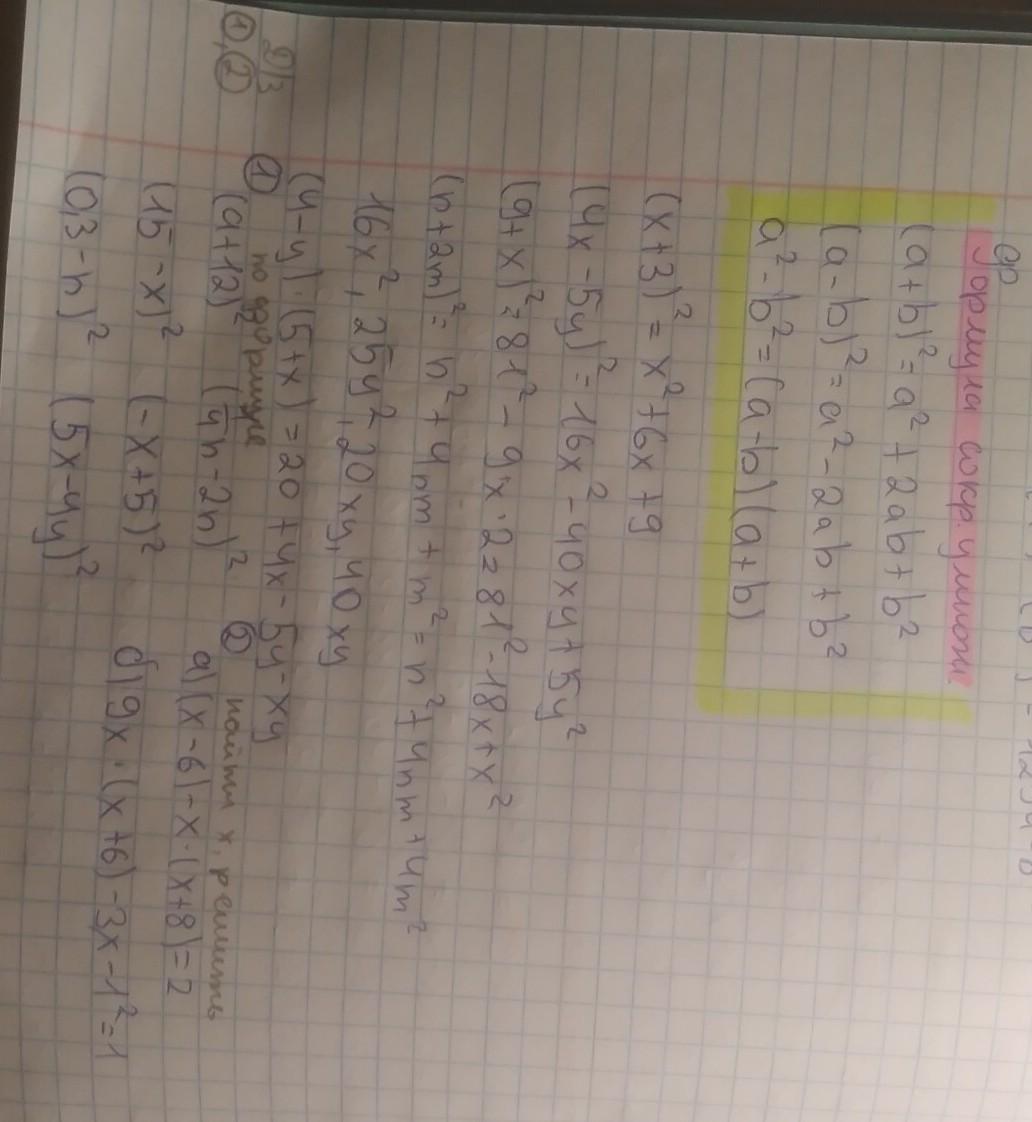 Формула сокр. умнож
(a+b)² = a² + 2ab + b²
(a-b)² = a² - 2ab + b²
a² - b² = (a-b)(a+b)
(x+3)² = x² + 6x + 9
(4x - 5y)² = 16x² - 40xy + 5y²
(9+x)² = 81² - 9x · 2 = 81² - 18x + x²
(n+2m)² = n² + 4nm + m² = n² + 4nm + 4m²
16x², 25y², 20xy, 40xy
(4-y) · (5+x) = 20 + 4x - 5y - xy
Д/З
①,②
① по формуле
(a+12)² (4n-2n)²
(15-x)² (-x+5)²
(0,3-n)² (5x-4y)²
② найти x, решить
а) (x-6) - x · (x+8) = 2
б) 9x · (x+6) - 3x - 1² = 1